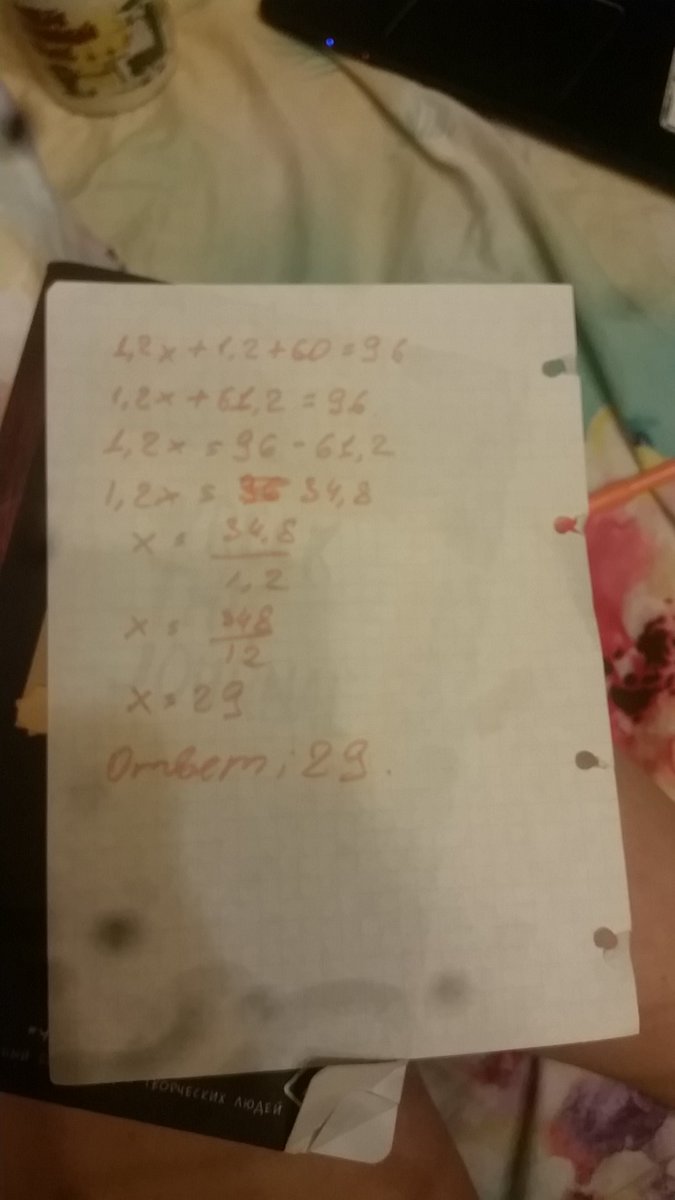 1,2x + 1,2 + 60 = 96
1,2x + 61,2 = 96
1,2x = 96 - 61,2
1,2x = 34,8
x = 34,8
1,2
x = 348
12
x = 29
Ответ: 29.
ТВОРЧЕСКИХ ЛЮДЕЙ